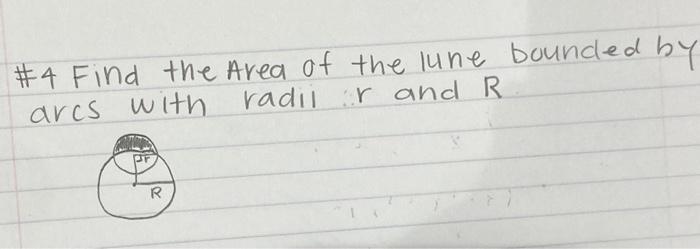 #4 Find the Area of the lune bounded by
arcs with radii r and R
r
R